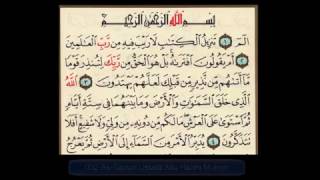 بِسْمِ ٱللَّهِ ٱلرَّحْمَٰنِ ٱلرَّحِيمِ
الٓمٓ ١ تَنزِيلُ ٱلْكِتَٰبِ لَا رَيْبَ فِيهِ مِن رَّبِّ ٱلْعَٰلَمِينَ
٢ أَمْ يَقُولُونَ ٱفْتَرَىٰهُ بَلْ هُوَ ٱلْحَقُّ مِن رَّبِّكَ لِتُنذِرَ قَوْمًا
مَّآ أَتَىٰهُم مِّن نَّذِيرٍ مِّن قَبْلِكَ لَعَلَّهُمْ يَهْتَدُونَ ٣ ٱللَّهُ
ٱلَّذِى خَلَقَ ٱلسَّمَٰوَٰتِ وَٱلْأَرْضَ وَمَا بَيْنَهُمَا فِى سِتَّةِ أَيَّامٍ
ثُمَّ ٱسْتَوَىٰ عَلَى ٱلْعَرْشِ مَا لَكُم مِّن دُونِهِۦ مِن وَلِىٍّ وَلَا شَفِيعٍ أَفَلَا
تَتَذَكَّرُونَ ٤ يُدَبِّرُ ٱلْأَمْرَ مِنَ ٱلسَّمَآءِ إِلَى ٱلْأَرْضِ ثُمَّ يَعْرُجُ